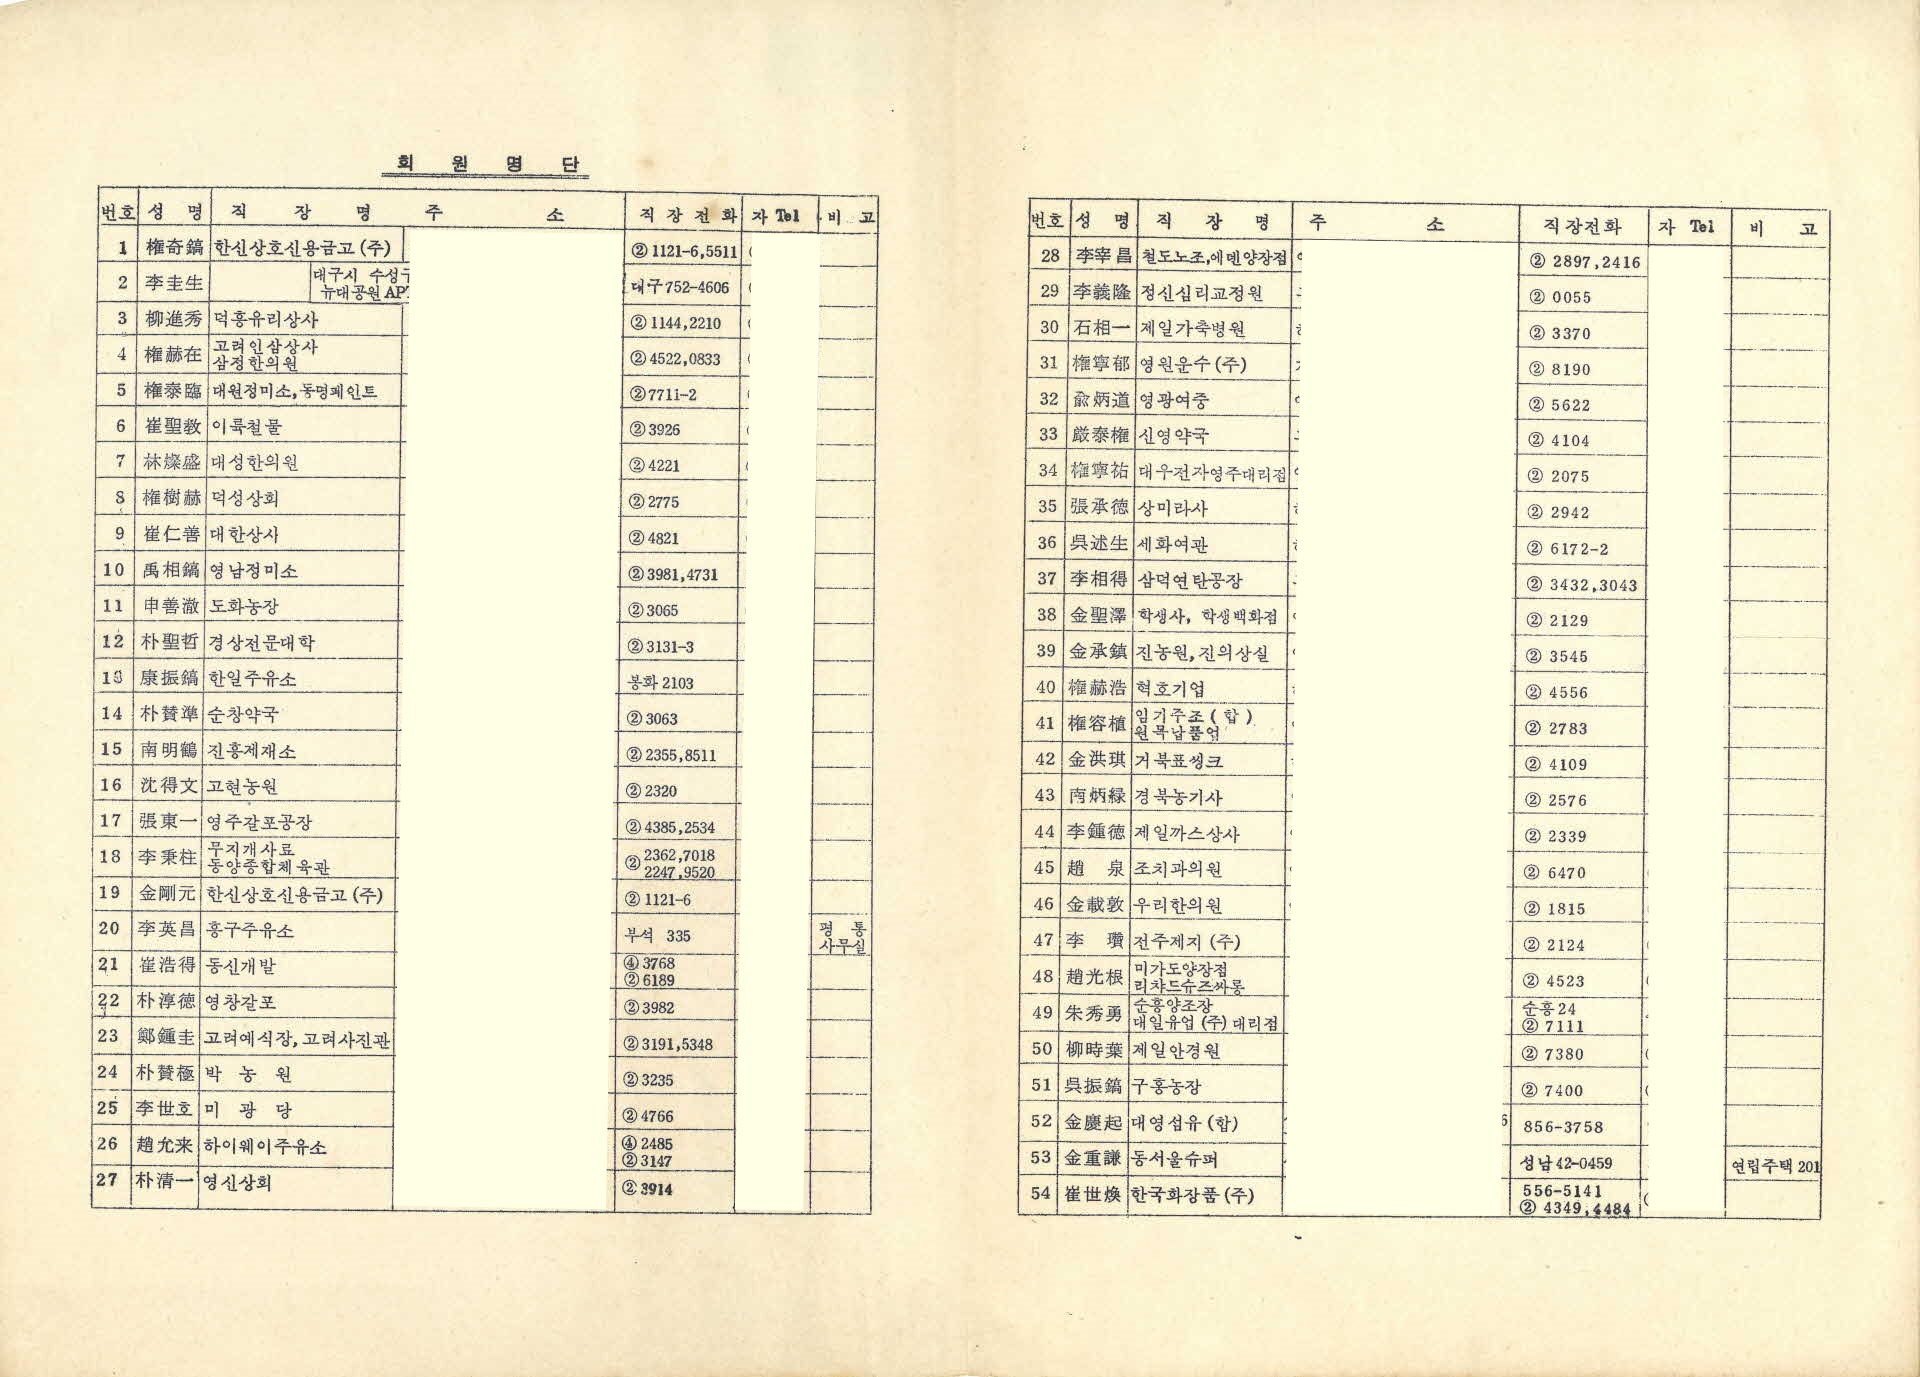 회 원 명 단
번호 성 명 직 장 명 주 소 직 장 전 화 자 Tel 비 고
1 権奇鎬 한신상호신용금고 (주) ② 1121-6,5511
2 李圭生 대구시 수성구 대구 752-4606
뉴대공원 AP
3 柳進秀 덕흥유리상사 ② 1144,2210
4 権赫在 고려인삼상사 ② 4522,0833
삼정한의원
5 権泰臨 대원정미소, 동명페인트 ② 7711-2
6 崔聖教 이륙철물 ② 3926
7 林燦盛 대성한의원 ② 4221
8 権樹赫 덕성상회 ② 2775
9 崔仁善 대한상사 ② 4821
10 禹相鎬 영남정미소 ② 3981,4731
11 申善澈 도화농장 ② 3065
12 朴聖哲 경상전문대학 ② 3131-3
13 康振鎬 한일주유소 봉화 2103
14 朴賛準 순창약국 ② 3063
15 南明鶴 진흥제재소 ② 2355,8511
16 沈得文 고현농원 ② 2320
17 張東一 영주갈포공장 ② 4385,2534
18 李秉柱 무지개사료 ② 2362,7018
동양종합체육관 2247,9520
19 金剛元 한신상호신용금고 (주) ② 1121-6
20 李英昌 흥구주유소 부석 335 평 통
사무실
21 崔浩得 동신개발 ④ 3768
② 6189
22 朴淳徳 영창갈포 ② 3982
23 鄭鍾圭 고려예식장, 고려사진관 ② 3191,5348
24 朴賛極 박 농 원 ② 3235
25 李世호 미 광 당 ② 4766
26 趙允来 하이웨이주유소 ④ 2485
② 3147
27 朴清一 영신상회 ② 3914
번호 성 명 직 장 명 주 소 직장전화 자 Tel 비 고
28 李宰昌 철도노조, 에덴양장점 ② 2897,2416
29 李義隆 정신심리교정원 ② 0055
30 石相一 제일가축병원 ② 3370
31 権寧郁 영원운수 (주) ② 8190
32 兪炳道 영광여중 ② 5622
33 厳泰権 신영약국 ② 4104
34 権寧祐 대우전자영주대리점 ② 2075
35 張承徳 상미라사 ② 2942
36 呉述生 세화여관 ② 6172-2
37 李相得 삼덕연탄공장 ② 3432,3043
38 金聖澤 학생사, 학생백화점 ② 2129
39 金承鎮 진농원, 진의상실 ② 3545
40 権赫浩 혁호기업 ② 4556
41 権容植 임기주조 (합) ② 2783
원목납품업
42 金洪琪 거북표씽크 ② 4109
43 南炳緑 경북농기사 ② 2576
44 李鍾徳 제일까스상사 ② 2339
45 趙 泉 조치과의원 ② 6470
46 金載敦 우리한의원 ② 1815
47 李 瓚 전주제지 (주) ② 2124
48 趙光根 미가도양장점 ② 4523
리챠드슈즈싸롱
49 朱秀勇 순흥양조장 순흥 24
대일유업 (주) 대리점 ② 7111
50 柳時葉 제일안경원 ② 7380
51 呉振鎬 구흥농장 ② 7400
52 金慶起 대영섬유 (합) 856-3758
53 金重謙 동서울슈퍼 성남 42-0459 연립주택 201
54 崔世煥 한국화장품 (주) 556-5141
② 4349,4484